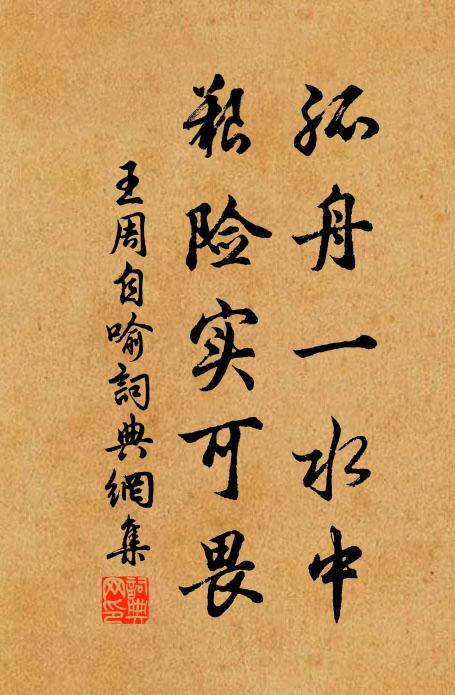 孤舟一水中
艰险实可畏
王周自喻詞典網集
詞典
网印